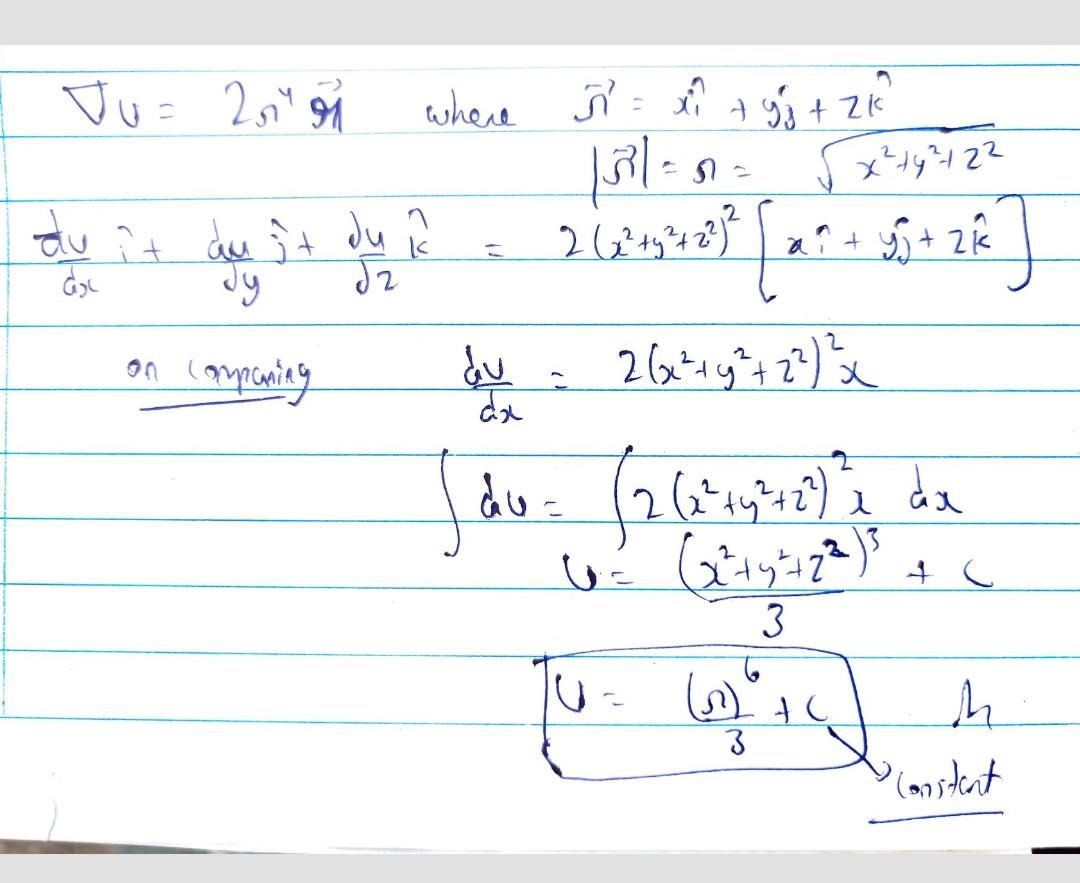 ∇u = 2r⁴ r⃗ where r⃗ = xî + yĵ + zk̂
|r⃗| = r = √(x²+y²+z²)
du/dx î + du/dy ĵ + du/dz k̂ = 2(x²+y²+z²)² [xî + yĵ + zk̂]
on comparing du/dx = 2(x²+y²+z²)²x
∫du = ∫2(x²+y²+z²)²x dx
U = (x²+y²+z²)³/3 + C
U = (r)⁶/3 + C
constant